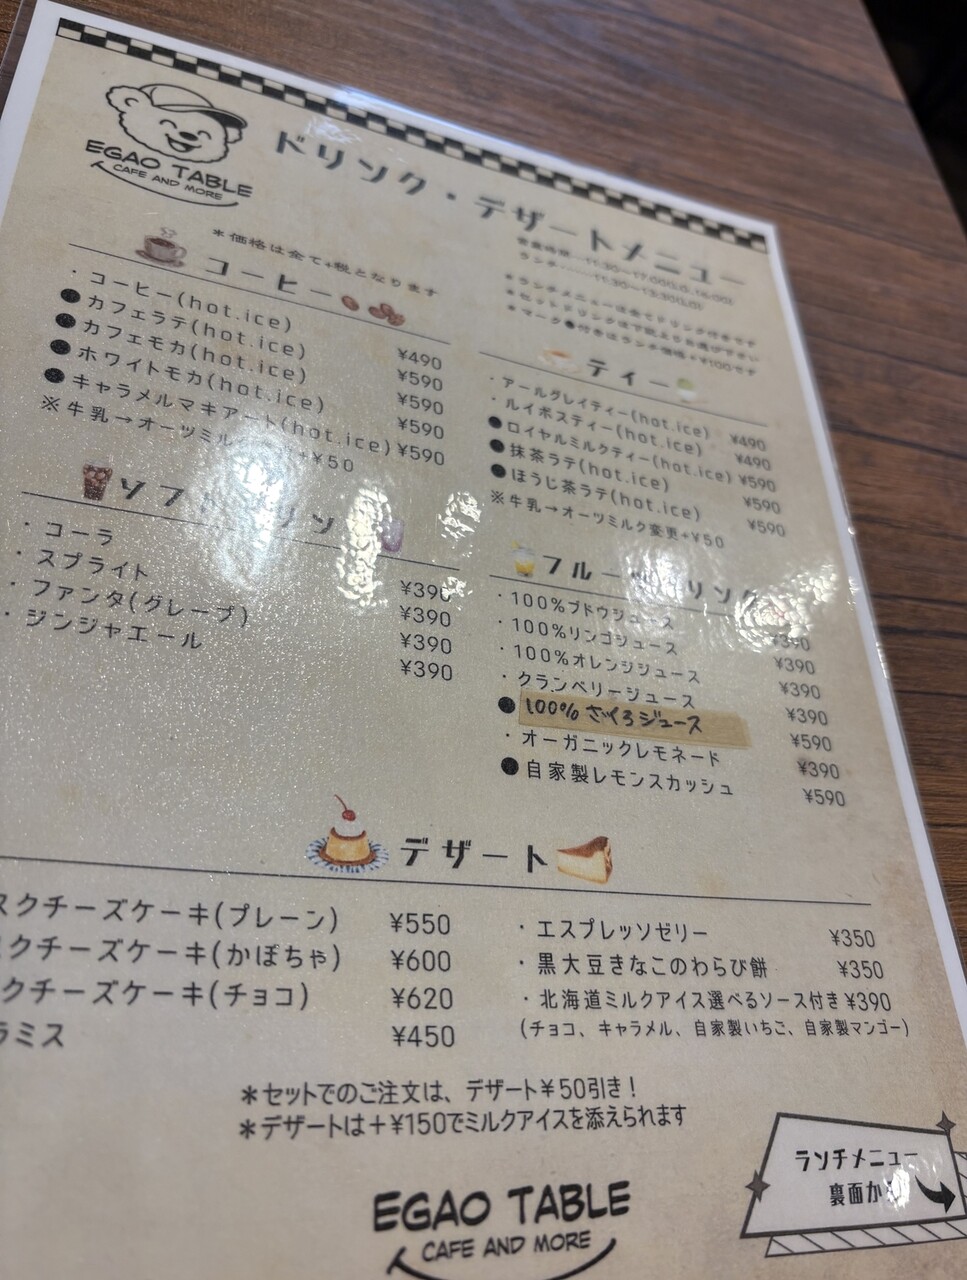 EGAO TABLE
CAFE AND MORE
ドリンク・デザートメニュー
*価格は全て+税となります
営業時間…11:30~17:00(L.O.16:00)
ランチ……11:30~13:30(L.O)
*ランチメニューは全てドリンク付きです
*セットドリンクは下記よりお選び下さい
*マーク●付きはランチ価格+¥100です
コーヒー
・コーヒー(hot.ice) ¥490
●カフェラテ(hot.ice) ¥590
●カフェモカ(hot.ice) ¥590
●ホワイトモカ(hot.ice) ¥590
●キャラメルマキアート(hot.ice) ¥590
※牛乳→オーツミル +¥50
ソフ リン
・コーラ ¥390
・スプライト ¥390
・ファンタ(グレープ) ¥390
・ジンジャエール ¥390
ティー
・アールグレイティー(hot.ice) ¥490
・ルイボスティー(hot.ice) ¥490
●ロイヤルミルクティー(hot.ice) ¥590
●抹茶ラテ(hot.ice) ¥590
●ほうじ茶ラテ(hot.ice) ¥590
※牛乳→オーツミルク変更+¥50
フルー リンク
・100%ブドウジュース ¥390
・100%リンゴジュース ¥390
・100%オレンジジュース ¥390
・クランベリージュース ¥390
●100% ざくろジュース ¥590
・オーガニックレモネード ¥390
●自家製レモンスカッシュ ¥590
デザート
スクチーズケーキ(プレーン) ¥550
クチーズケーキ(かぼちゃ) ¥600
クチーズケーキ(チョコ) ¥620
ラミス ¥450
・エスプレッソゼリー ¥350
・黒大豆きなこのわらび餅 ¥350
・北海道ミルクアイス選べるソース付き ¥390
(チョコ、キャラメル、自家製いちご、自家製マンゴー)
*セットでのご注文は、デザート¥50引き!
*デザートは+¥150でミルクアイスを添えられます
ランチメニュー
裏面から
EGAO TABLE
CAFE AND MORE